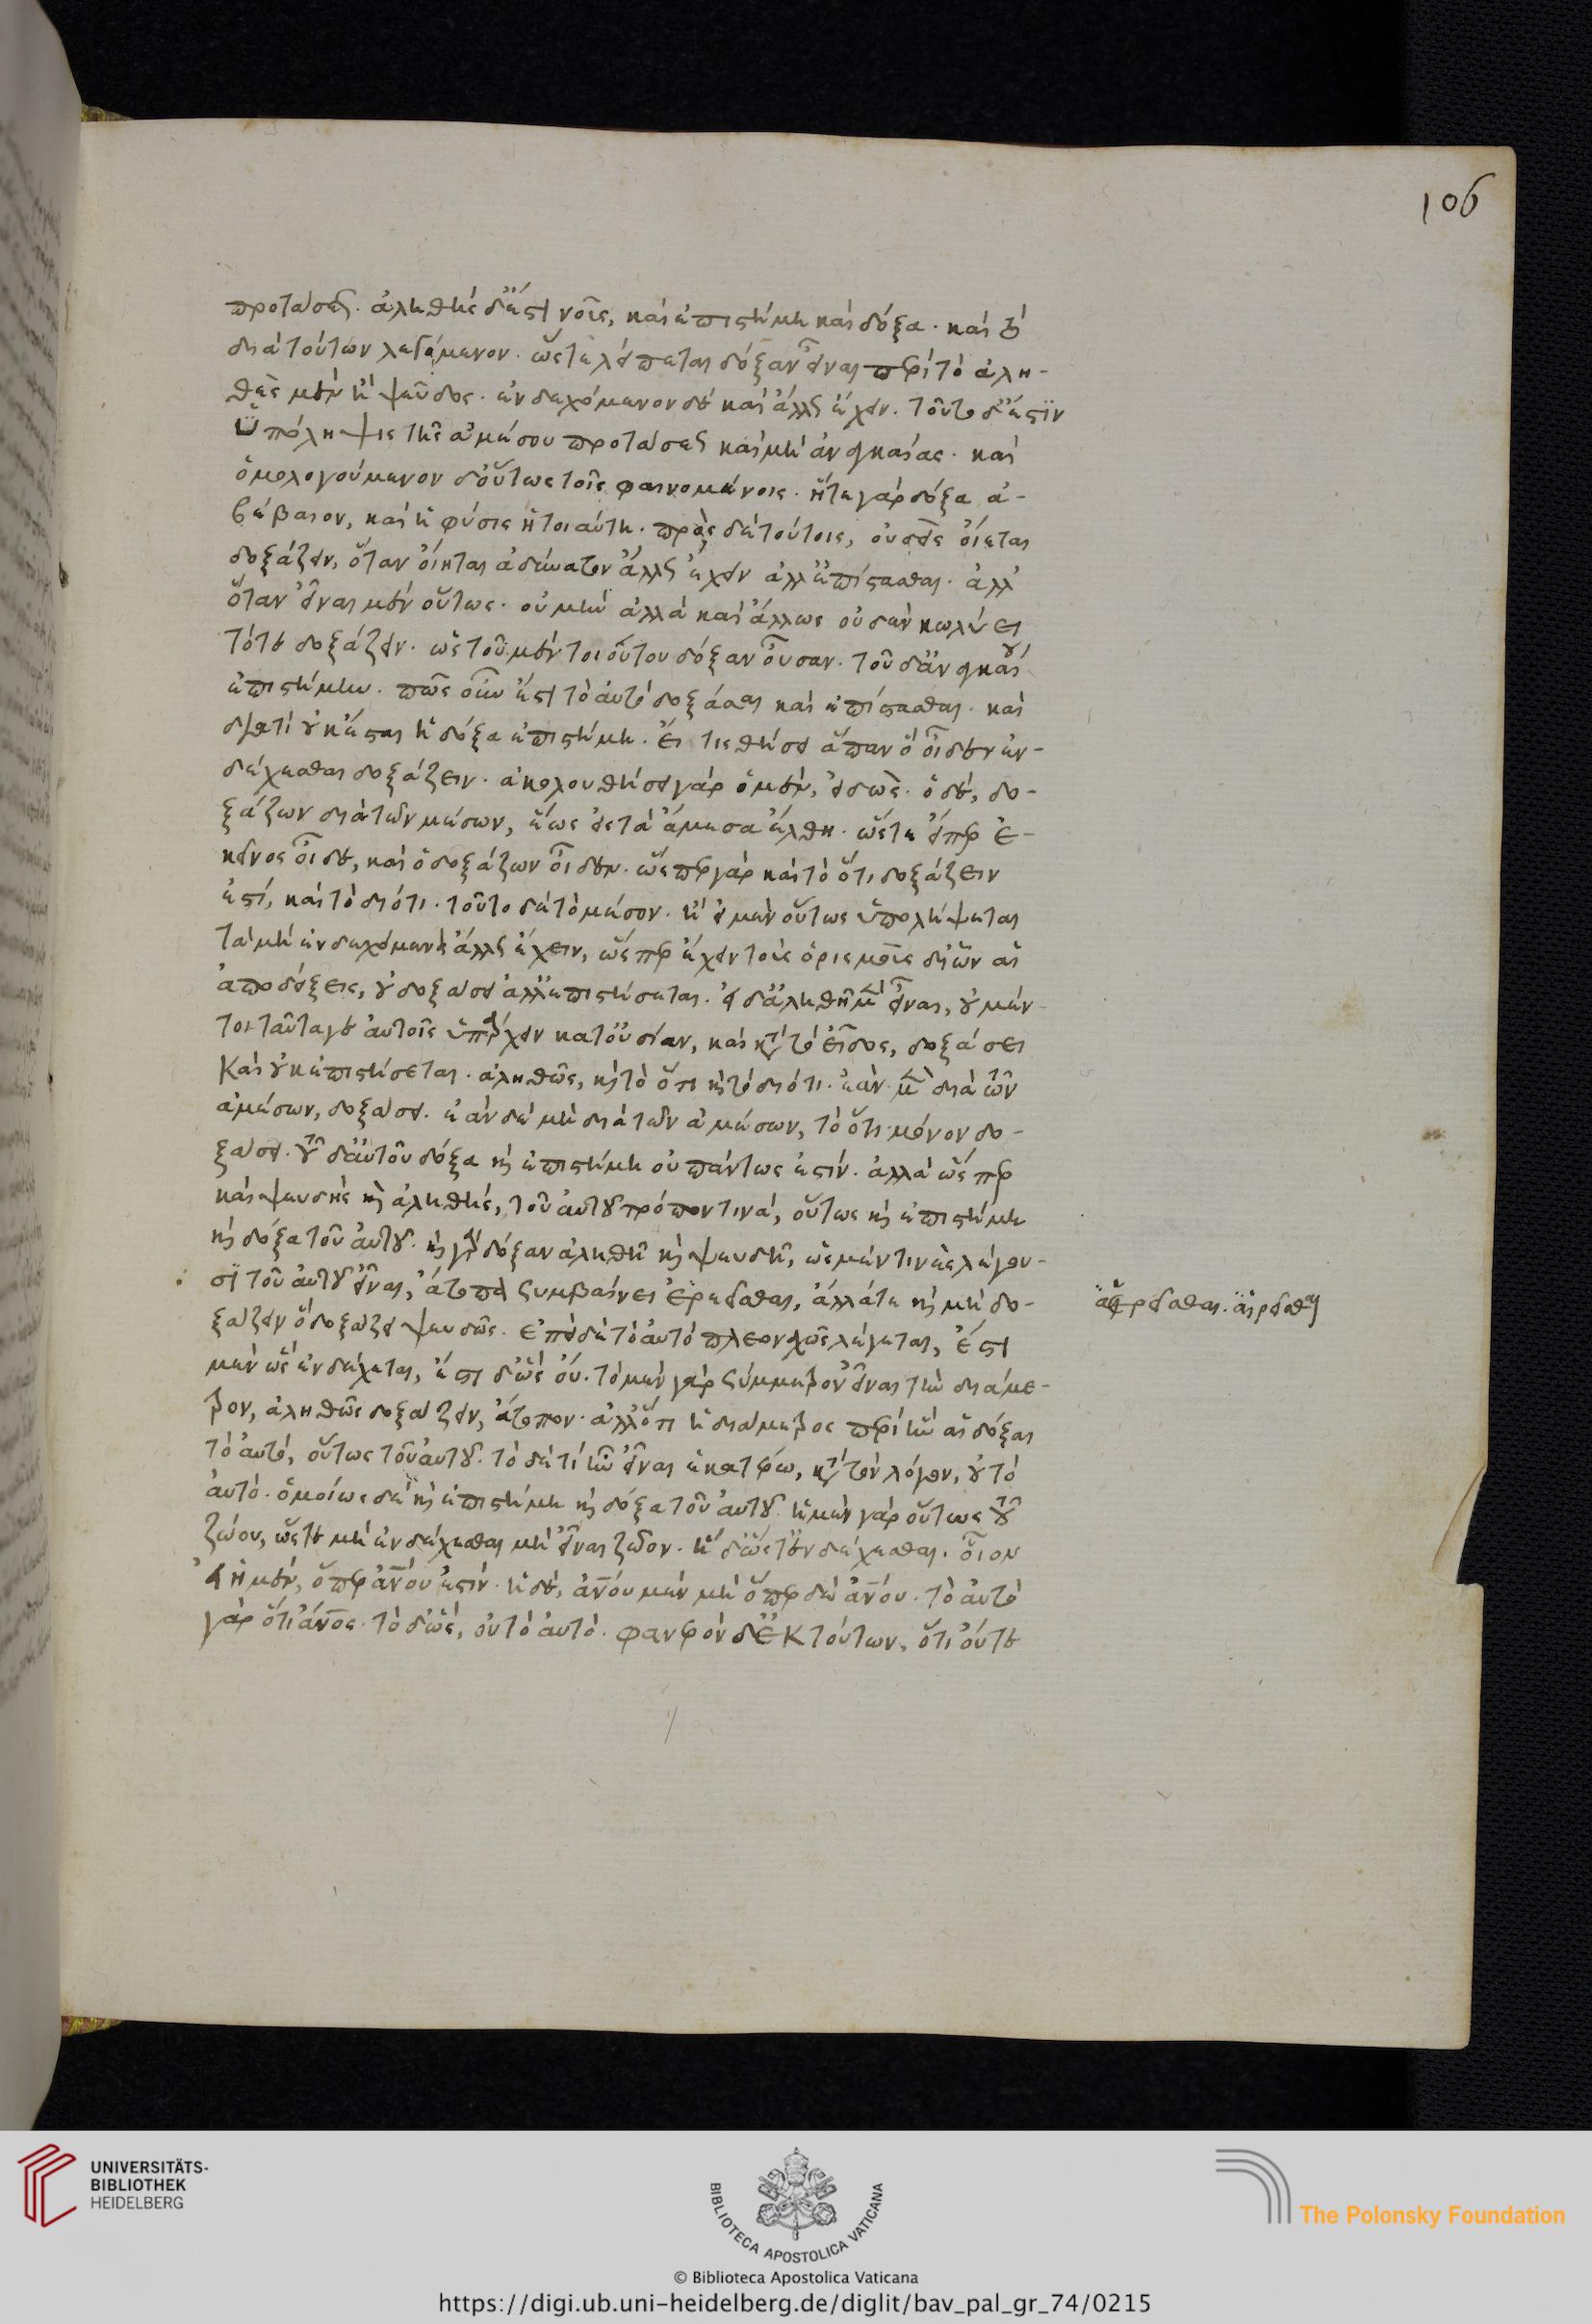 προτάσεως. ἀληθὴς δ' ἔστι νοῦς, καὶ ἐπιστήμη καὶ δόξα. καὶ τὸ
διὰ τούτων λεγόμενον. ὥστε λείπεται δόξαν εἶναι περὶ τὸ ἀλη-
θὲς μὲν ἢ ψεῦδος. ἐνδεχόμενον δὲ καὶ ἄλλως ἔχειν. τοῦτο δ' ἐστὶν
ὑπόληψις τῆς ἀμέσου προτάσεως καὶ μὴ ἀναγκαίας. καὶ
ὁμολογούμενον δ' οὕτως τοῖς φαινομένοις. ἥ τε γὰρ δόξα ἀ-
βέβαιον, καὶ ἡ φύσις ἡ τοιαύτη. πρὸς δὲ τούτοις, οὐδεὶς οἴεται
δοξάζειν, ὅταν οἴηται ἀδύνατον ἄλλως ἔχειν ἀλλ' ἐπίστασθαι. ἀλλ'
ὅταν εἶναι μὲν οὕτως. οὐ μὴν ἀλλὰ καὶ ἄλλως οὐδὲν κωλύει
τότε δοξάζειν. ὡς τοῦ μὲν τοιούτου δόξαν οὖσαν. τοῦ δ' ἀναγκαίου
ἐπιστήμην. πῶς οὖν ἔστι τὸ αὐτὸ δοξάσαι καὶ ἐπίστασθαι. καὶ
διατί οὐκ ἔσται ἡ δόξα ἐπιστήμη. εἴ τις θήσει ἅπαν ὃ οἶδεν ἐν-
δέχεσθαι δοξάζειν. ἀκολουθήσει γὰρ ὁ μὲν, εἰδὼς. ὁ δὲ, δο-
ξάζων διὰ τῶν μέσων, ἕως εἰς τὰ ἄμεσα ἔλθη. ὥστε εἴπερ ἐ-
κεῖνος οἶδε, καὶ ὁ δοξάζων οἶδεν. ὥσπερ γὰρ καὶ τὸ ὅτι δοξάζειν
ἐστί, καὶ τὸ διότι. τοῦτο δὲ τὸ μέσον. ἢ εἰ μὲν οὕτως ὑπολήψεται
τὰ μὴ ἐνδεχόμενα ἄλλως ἔχειν, ὥσπερ ἔχειν τοὺς ὁρισμοὺς δι' ὧν αἱ
ἀποδείξεις, οὐ δοξάσει ἀλλ' ἐπιστήσεται. εἰ δ' ἀληθῆ μὲν εἶναι, οὐ μέν-
τοι ταῦτά γε αὐτοῖς ὑπάρχειν κατ' οὐσίαν, καὶ κατὰ τὸ εἶδος, δοξάσει
καὶ οὐκ ἐπιστήσεται. ἀληθῶς, καὶ τὸ ὅτι καὶ τὸ διότι. ἐὰν μὲν διὰ τῶν
ἀμέσων, δοξάσει. ἐὰν δὲ μὴ διὰ τῶν ἀμέσων, τὸ ὅτι μόνον δο-
ξάσει. τοῦ δ' αὐτοῦ δόξα καὶ ἐπιστήμη οὐ πάντως ἐστίν. ἀλλὰ ὥσπερ
καὶ ψευδὴς καὶ ἀληθὴς, τοῦ αὐτοῦ τρόπον τινά, οὕτως καὶ ἐπιστήμη
καὶ δόξα τοῦ αὐτοῦ. καὶ γὰρ δόξαν ἀληθῆ καὶ ψευδῆ, ὡς μέν τινες λέγου-
σι τοῦ αὐτοῦ εἶναι, ἄτοπα συμβαίνει ἐρεῖσθαι, ἄλλα τε καὶ μὴ δο-
ξάζειν ὃ δοξάζει ψευδῶς. ἐπεὶ δὲ τὸ αὐτὸ πλεοναχῶς λέγεται, ἔστι
μὲν ὡς ἐνδέχεται, ἔστι δ' ὡς οὔ. τὸ μὲν γὰρ σύμμετρον εἶναι τὴν διάμε-
τρον, ἀληθῶς δοξάζειν, ἄτοπον. ἀλλ' ὅτι ἡ διάμετρος περὶ ἣν αἱ δόξαι
τὸ αὐτό, οὕτως τοῦ αὐτοῦ. τὸ δὲ τί ἦν εἶναι ἑκατέρω, κατὰ τὸν λόγον, οὐ τὸ
αὐτό. ὁμοίως δὲ καὶ ἐπιστήμη καὶ δόξα τοῦ αὐτοῦ. ἡ μὲν γὰρ οὕτως τοῦ
ζώου, ὥστε μὴ ἐνδέχεσθαι μὴ εἶναι ζῶον. ἡ δ' ὥστ' ἐνδέχεσθαι. οἷον
εἰ ἡ μὲν, ὅπερ ἀνου ἐστίν. ἡ δὲ, ἀνου μὲν μὴ ὅπερ δὲ ἀνου. τὸ αὐτὸ
γὰρ ὅτι ἀνος. τὸ δ' ὡς, οὐ τὸ αὐτό. φανερὸν δ' ἐκ τούτων, ὅτι οὔτε
106
UNIVERSITÄTS-
BIBLIOTHEK
HEIDELBERG
BIBLIOTECA APOSTOLICA VATICANA
The Polonsky Foundation
© Biblioteca Apostolica Vaticana
https://digi.ub.uni-heidelberg.de/diglit/bav_pal_gr_74/0215